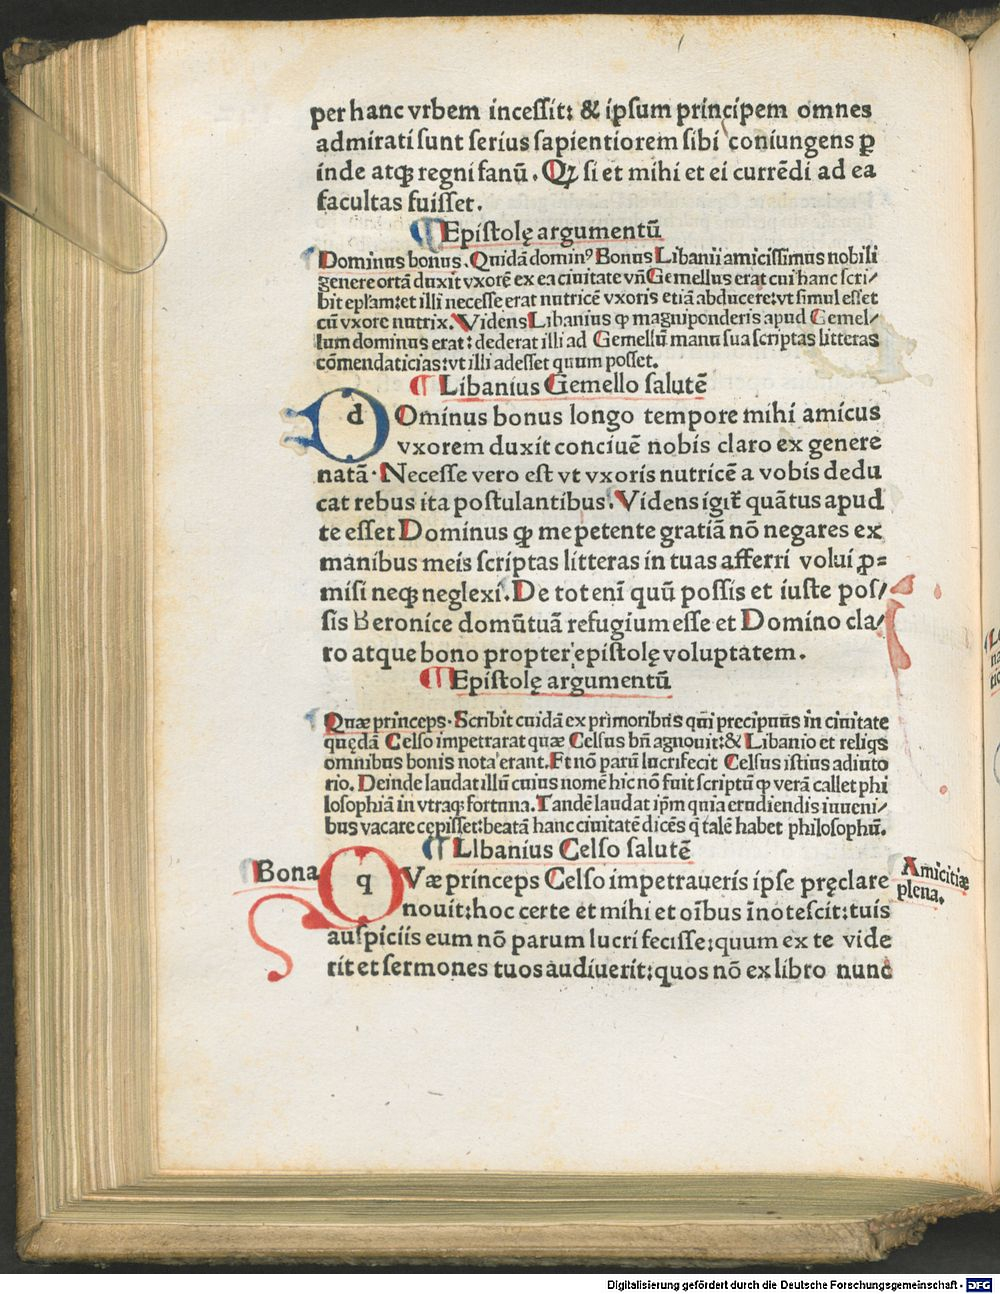 per hanc vrbem incessit: & ipsum principem omnes
admirati sunt serius sapientiorem sibi coniungens ꝑ
inde atqꝫ regni fanū. Qꝫ si et mihi et ei currēdi ad ea
facultas fuisset.
¶ Epistolę argumentū
Dominus bonus. Quidā dominꝰ Bonus Libanii amicissimus nobili
genere ortā duxit vxorē ex ea ciuitate vn̄ Gemellus erat cui hanc scri/
bit epłam: et illi necesse erat nutricē vxoris etiā abducere: vt simul esset
cū vxore nutrix. Videns Libanius ꝙ magniponderis apud Gemel/
lum dominus erat: dederat illi ad Gemellū manu sua scriptas litteras
cōmendaticias: vt illi adesset quum posset.
¶ Libanius Gemello salutē
dOminus bonus longo tempore mihi amicus
vxorem duxit conciuē nobis claro ex genere
natā. Necesse vero est vt vxoris nutricē a vobis dedu
cat rebus ita postulantibus. Videns igit̄ quātus apud
te esset Dominus ꝙ me petente gratiā nō negares ex
manibus meis scriptas litteras in tuas afferri volui ꝓ=
misi neqꝫ neglexi. De tot eni᷑ quū possis et iuste pos/
sis Beronice domū tuā refugium esse et Domino cla/
ro atque bono propter epistolę voluptatem.
¶ Epistolę argumentū
Quæ princeps. Scribit cuidā ex primoribus qui precipuus in ciuitate
quędā Celso impetrarat quæ Celsus bn̄ agnouit: & Libanio et reliqs
omnibus bonis nota erant. Et nō parū lucrifecit Celsus istius adiuto
rio. Deinde laudat illū cuius nomē hic nō fuit scriptū ꝙ verā callet phi
losophiā in vtraqꝫ fortuna. Tandē laudat ip̄m quia erudiendis iuueni/
bus vacare cępisset: beatā hanc ciuitatē dicēs q̄ talē habet philosophū.
¶ LIbanius Celso salutē
Bona
qVæ princeps Celso impetraueris ipse pręclare
Amicitiæ
plena.
nouit: hoc certe et mihi et oi᷑bus īnotescit: tuis
auspiciis eum nō parum lucri fecisse: quum ex te vide
rit et sermones tuos audiuerit: quos nō ex libro nunc
Digitalisierung gefördert durch die Deutsche Forschungsgemeinschaft - DFG